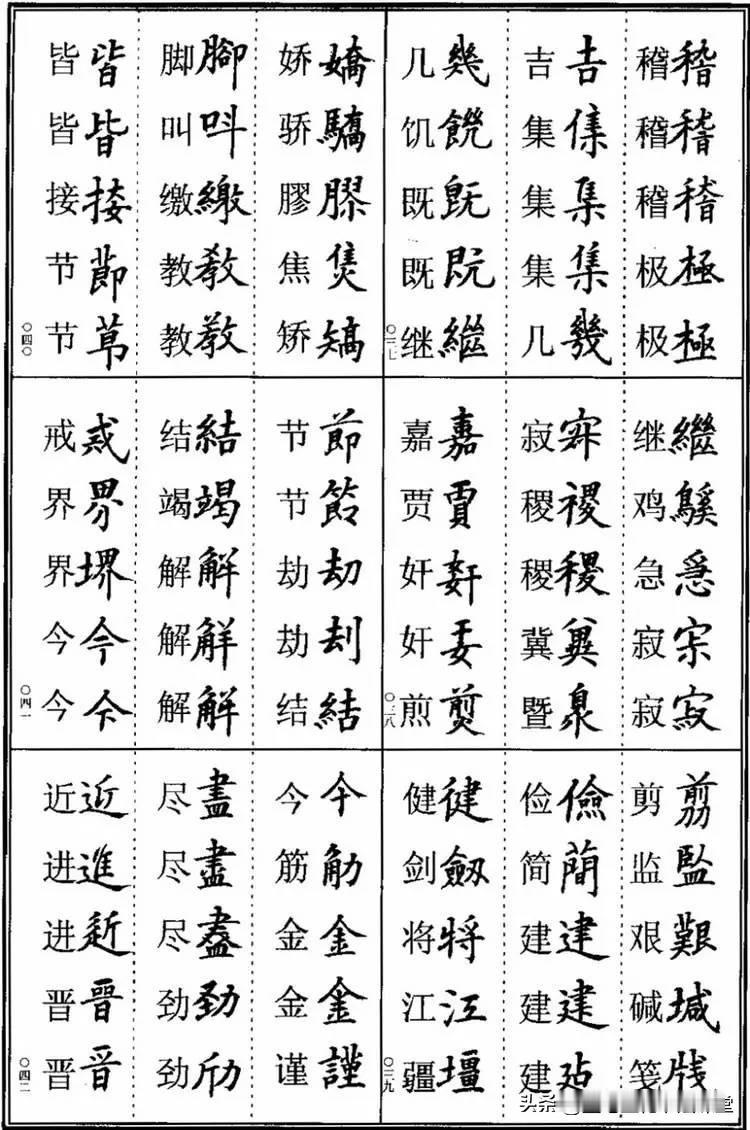 稽稽 稽稽 稽嵇 极極 极極
吉吉 集集 集集 集集 几幾
几幾 饥饑 既既 既既 继繼
〇三七
继繼 鸡鷄 急急 寂寂 寂寂
寂寂 稷稷 稷稷 冀冀 暨臮
嘉嘉 贾賈 奸姧 奸奸 煎煎
〇三八
剪剪 监監 艰艱 碱堿 笺牋
俭儉 简蕳 建建 建建 建建
健健 剑劔 将将 江江 疆壃
〇三九
娇嬌 骄驕 膠膠 焦焦 矫矯
脚腳 叫呌 缴繳 教教 教教
皆皆 皆皆 接接 节節 节莭
〇四〇
节節 节節 劫劫 劫刦 结結
结結 竭竭 解解 解解 解解
戒戒 界界 界堺 今今 今今
〇四一
今今 筋筋 金金 金金 谨謹
尽盡 尽盡 尽盡 劲勁 劲劲
近近 进進 进進 晋晉 晋晋
〇四二
头条